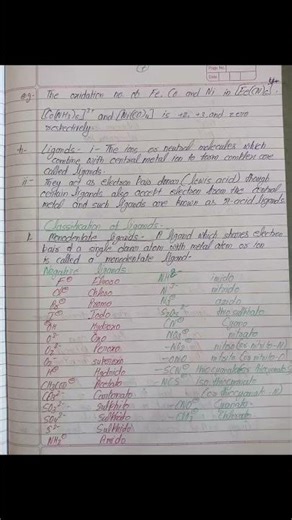 e.g- The oxidation no. of Fe, Co and Ni in [Fe(CN)6]4-,
[Co(NH3)6]3+ and [Ni(CO)4] is +2, +3 and zero
respectively.
Ligands - :- The ions or neutral molecules which
combine with central metal ion to form complex are
called ligands.
They act as electron pair donor (lewis acid) though
certain ligands also accept electron from the central
metal and such ligands are known as π-acid ligands
Classification of ligands-
1. Monodentate ligands:- A ligand which shares electron
pair of a single donor atom with metal atom or ion
is called a monodentate ligand-
Negative ligands:-
F⊖ Fluoro NH2- imido
Cl⊖ Chloro N3- nitrido
Br⊖ Bromo N3⊖ azido
I⊖ Iodo S2O32- thiosulphato
OH⊖ Hydroxo CN⊖ Cyano
O2- Oxo NO3⊖ nitrato
O22- Peroxo -NO2⊖
O2⊖ superoxo -ONO nitrito
H⊖ Hydrido -SCN⊖ thiocyanato
CH3COO⊖ Acetato -NCS⊖ Iso thiocyanato
CO32- Carbonato
SO32- Sulphito
SO42- Sulphato
S2- Sulphido
NH2⊖ Amido